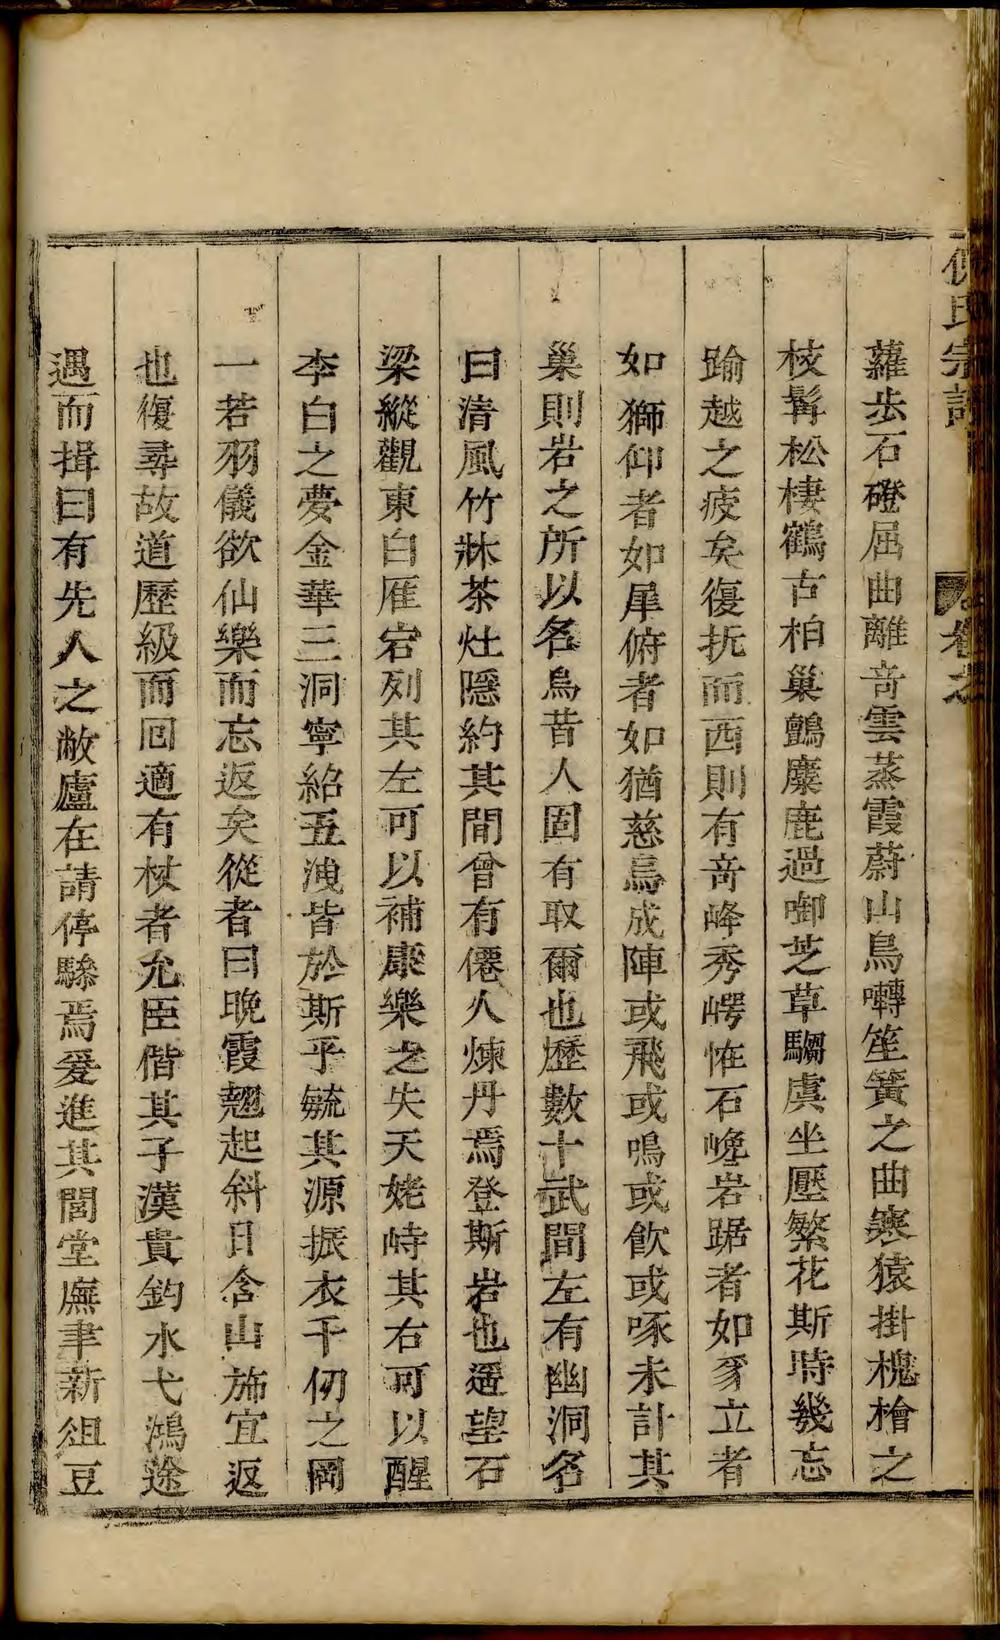 氏宗譜
卷之
蘿步石磴屈曲離竒雲蒸霞蔚山鳥囀笙簧之曲寒猿掛槐檜之
枝髯松棲鶴古柏巢鸛麋鹿過啣芝草騶虞坐壓繁花斯時幾忘
踰越之疲矣復折而西則有竒峰秀崿恠石巉岩踞者如豸立者
如獅仰者如犀俯者如猶慈烏成陣或飛或鳴或飲或啄未計其
巢則岩之所以名烏昔人固有取爾也歷數十武間左有幽洞名
曰清風竹牀茶灶隱約其間曾有僊人煉丹焉登斯岩也遥望石
梁縱觀東白雁宕列其左可以補康樂之失天姥峙其右可以醒
李白之夢金華三洞寧紹五洩皆於斯乎毓其源振衣千仞之岡
一若羽儀欲仙樂而忘返矣從者曰晚霞翹起斜日含山施宜返
也復尋故道歷級而回適有杖者允臣偕其子漢貴釣水弋鴻途
遇而揖曰有先人之敝廬在請停驂焉爰進其閭堂廡聿新俎豆